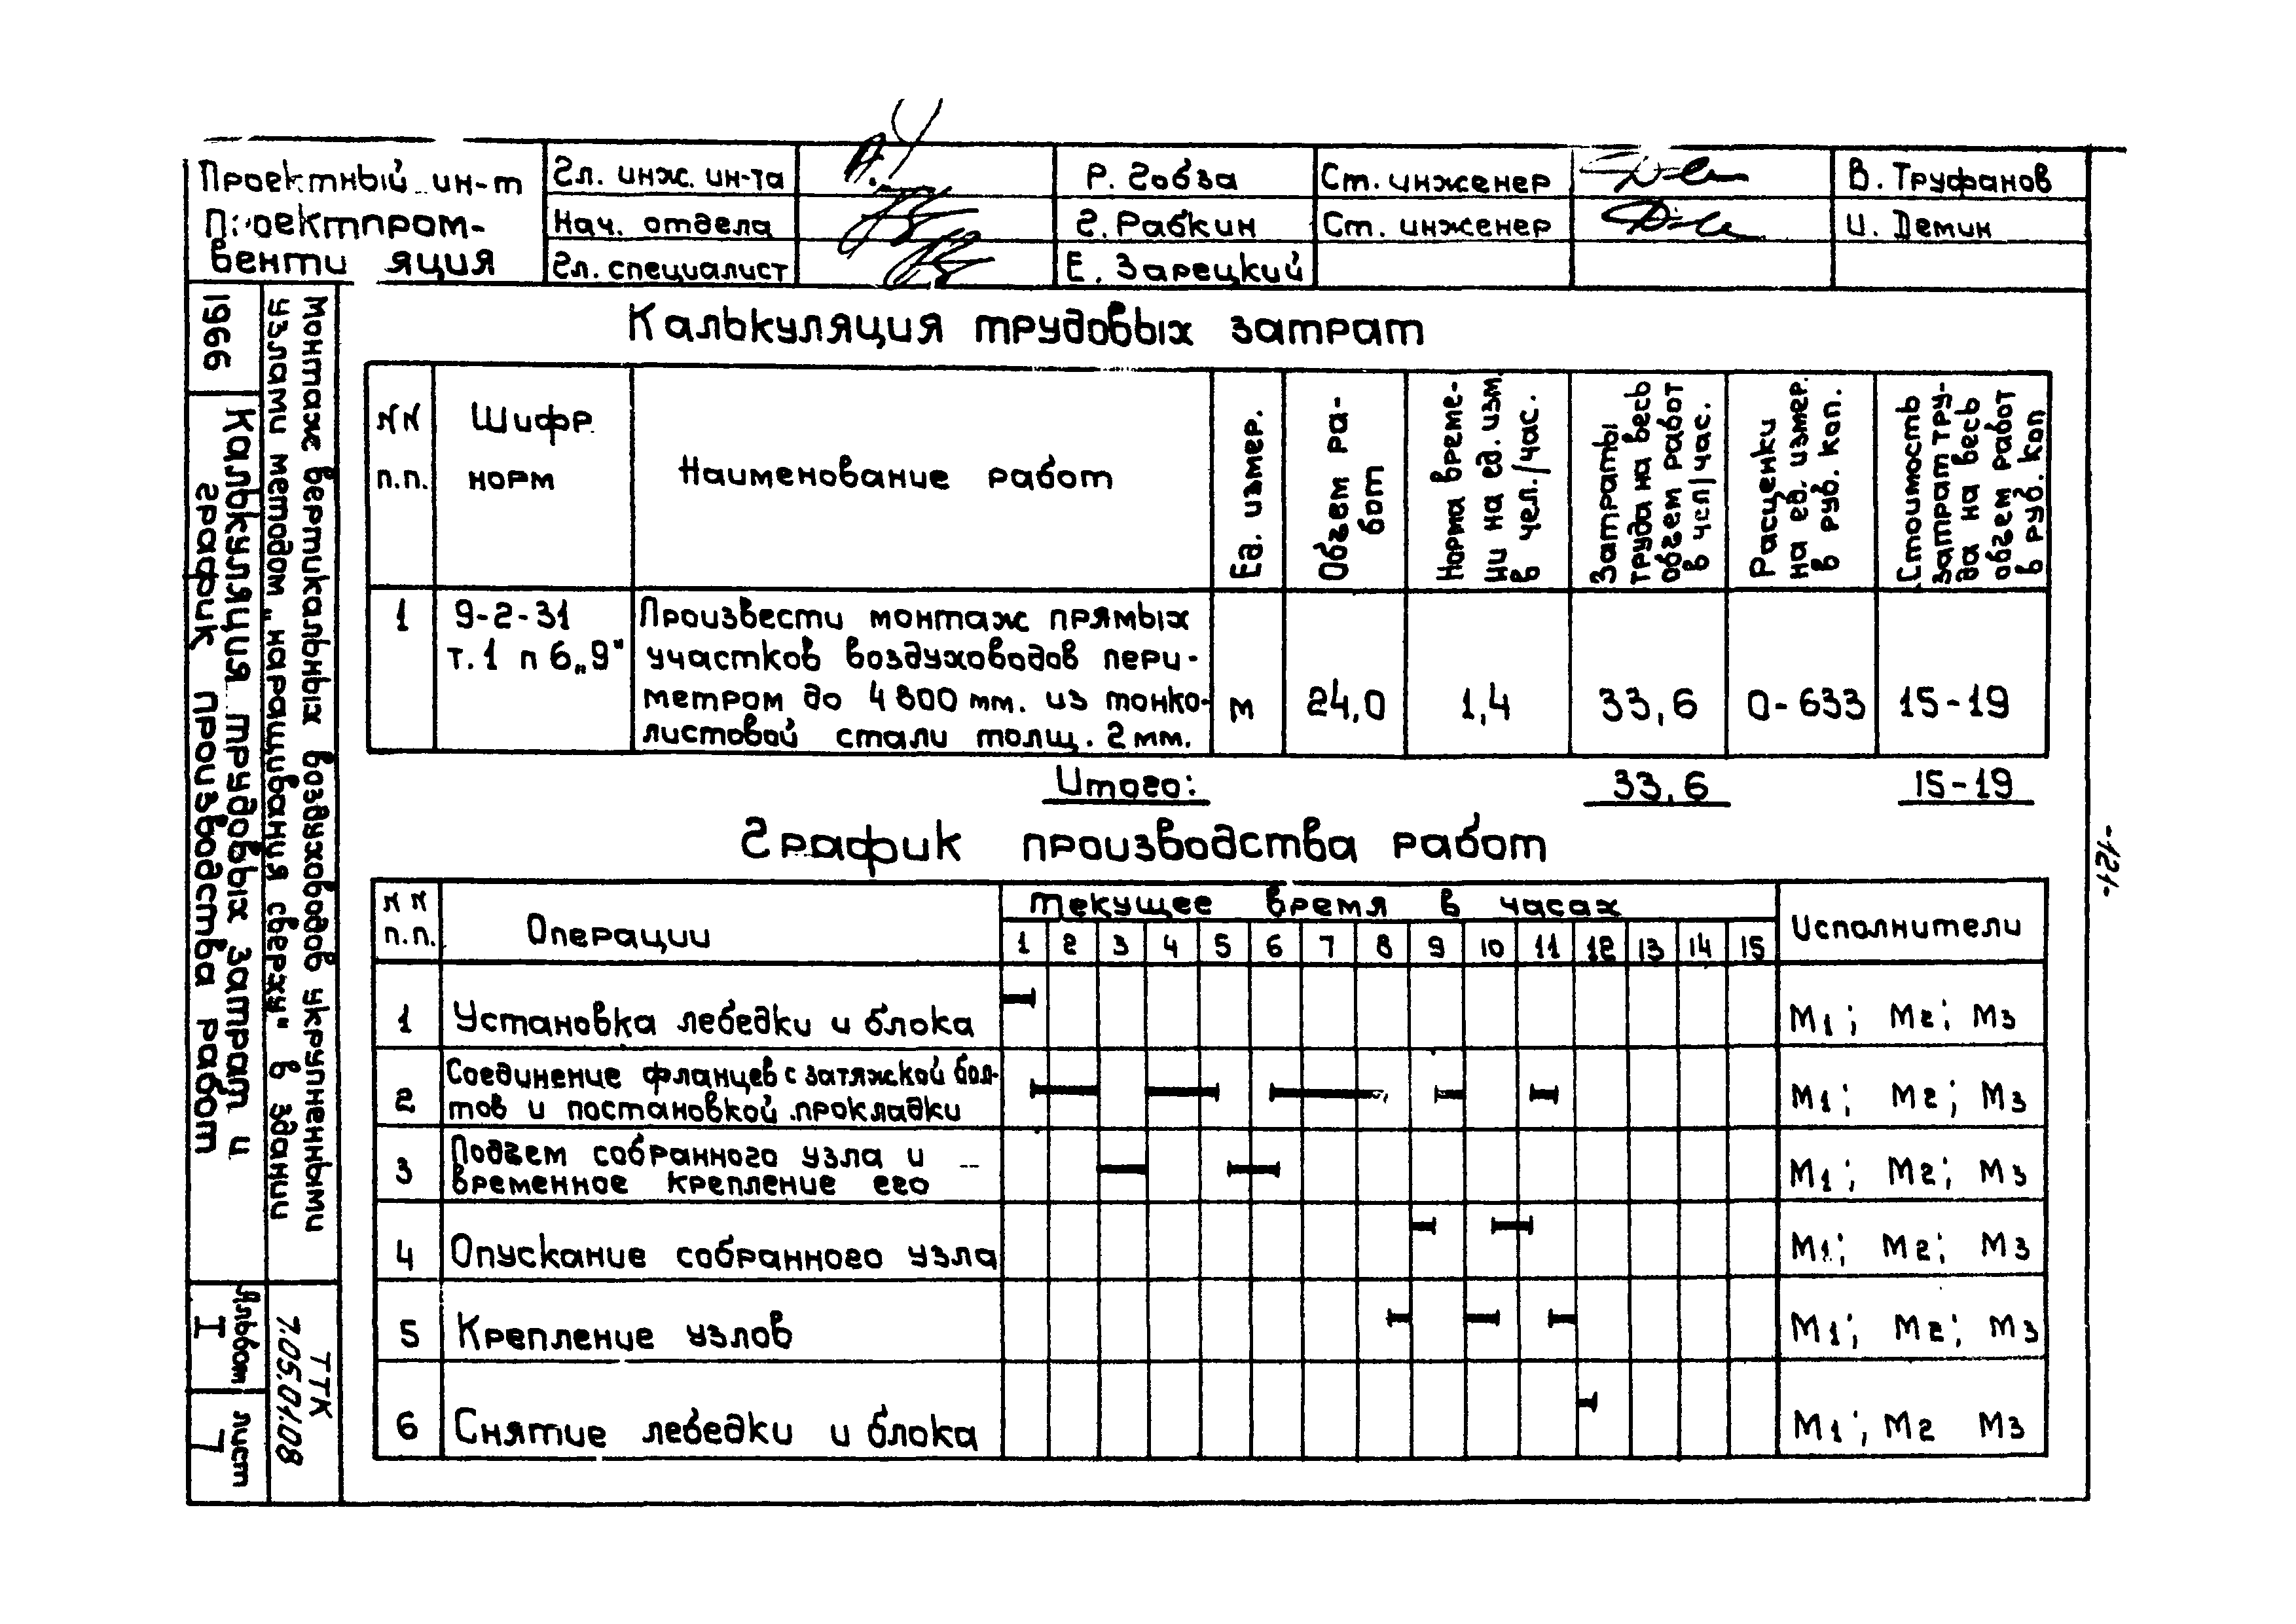 Проектный ин-т
Проектпром-
венти яция
Гл. инж. ин-та
Р. Гобза
Ст. инженер
В. Труфанов
Нач. отдела
Г. Рабкин
Ст. инженер
И. Демин
Гл. специалист
Е. Зарецкий
1966
Монтаж вертикальных воздуховодов укрупненными
узлами методом „наращивания сверху" в здании
Калькуляция трудовых затрат и
график производства работ
Альбом
I
лист
7
ТТК
7.05.01.08
Калькуляция трудовых затрат
NN
п.п.
Шифр
норм
Наименование работ
Ед. измер.
Объем ра-
бот
Норма време-
ни на ед. изм.
в чел./час.
Затраты
труда на весь
объем работ
в чел/час.
Расценки
на ед. измер.
в руб. коп.
Стоимость
затрат тру-
да на весь
объем работ
в руб. коп
1
9-2-31
т.1 п 6„9"
Произвести монтаж прямых
участков воздуховодов пери-
метром до 4800 мм. из тонко-
листовой стали толщ. 2 мм.
м
24,0
1,4
33,6
0-633
15-19
Итого:
33,6
15-19
График производства работ
NN
п.п.
Операции
текущее время в часах
1 2 3 4 5 6 7 8 9 10 11 12 13 14 15
Исполнители
1 Установка лебедки и блока
М1; М2; М3
2 Соединение фланцев с затяжкой бол-
тов и постановкой прокладки
М1; М2; М3
3 Подъем собранного узла и
временное крепление его
М1; М2; М3
4 Опускание собранного узла
М1; М2; М3
5 Крепление узлов
М1; М2; М3
6 Снятие лебедки и блока
М1; М2 М3
-121-